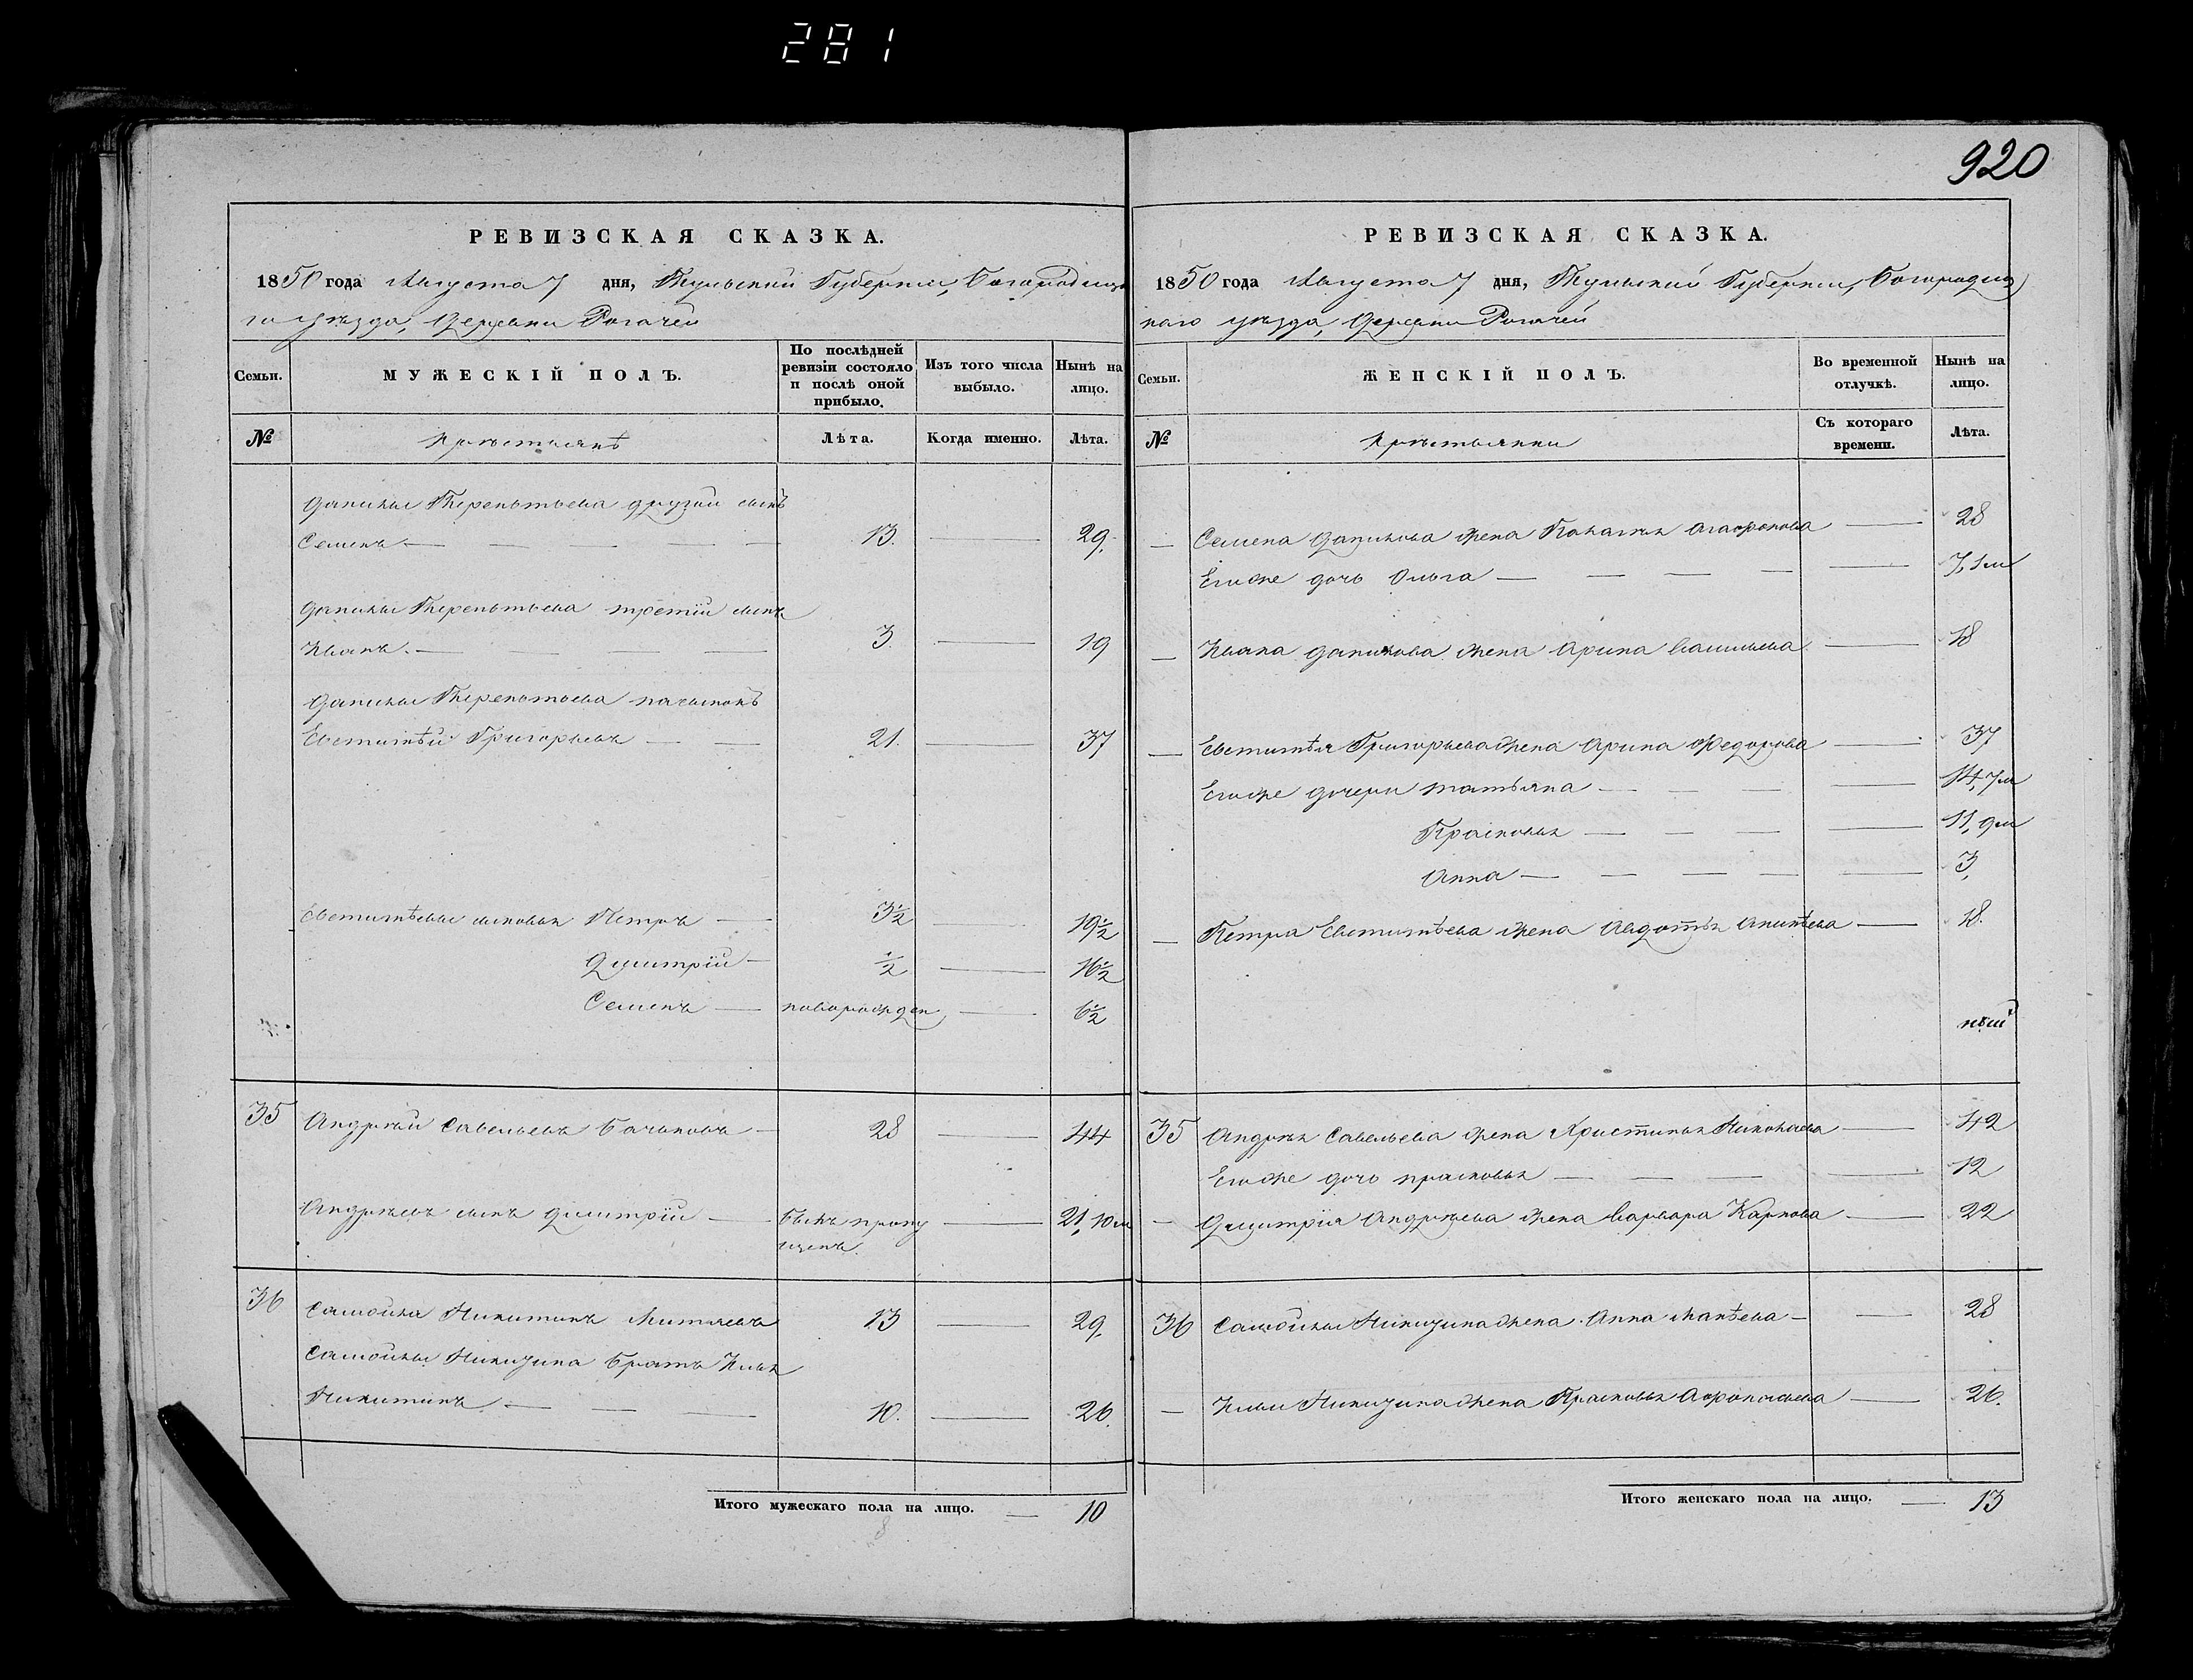 281
920
РЕВИЗСКАЯ СКАЗКА.
1850 года Августа 7 дня, Тульской Губернии, Богородицка
го уѣзда, Деревни Рогачей
Семьи.
МУЖЕСКІЙ ПОЛЪ.
По послѣдней ревизіи состояло и послѣ оной прибыло.
Изъ того числа выбыло.
Нынѣ на лицо.
№ Крестьянѣ Лѣта. Когда именно. Лѣта.
Данилы Терентьева другой сынъ
Семенъ — 13. — 29.
Данилы Терентьева третій сынъ
Иванъ. — 3. — 19
Данилы Терентьева
Евстигнѣй Григорьевъ — 21. — 37
сыновья Петръ — 3½ — 19½
Дмитрій — ½ — 16½
Семенъ — новорожден — 6½
35 Андрѣй Савельевъ — 28 — 44
Андрѣевъ сынъ Дмитрій — былъ пропу — 21, 10 м
щенъ.
36 Самойла Никитинъ Митяевъ 13 — 29.
Самойлы Никитина братъ Илья
Никитинъ — 10. — 26.
Итого мужескаго пола на лицо. — 10
8
РЕВИЗСКАЯ СКАЗКА.
1850 года Августа 7 дня, Тульской Губернии, Богородиц
каго уѣзда, Деревни Рогачей
Семьи.
ЖЕНСКІЙ ПОЛЪ.
Во временной отлучкѣ.
Нынѣ на лицо.
№ Крестьянки Съ котораго времени. Лѣта.
— Семена Данилова жена Пелагѣя Агафонова — 28
Егоже дочь Ольга — 7, 1 м
— Ивана Данилова жена Арина Васильева — 18
— Евстигнѣя Григорьева жена Арина Федорова — 37
Егоже дочери Татьяна — 14, 7 м
Прасковья — 11, 9 м
Анна — 3,
— Петра Евстигнѣева жена Авдотья — 18.
ный
35 Андрѣя Савельева жена Христинья Николаева — 42
Егоже дочь прасковья — 12
— Дмитрія Андрѣева жена Варвара Карпова — 22
36 Самойлы Никитина жена Анна — 28
— Ильи Никитина жена Прасковья — 26.
Итого женскаго пола на лицо. — 13